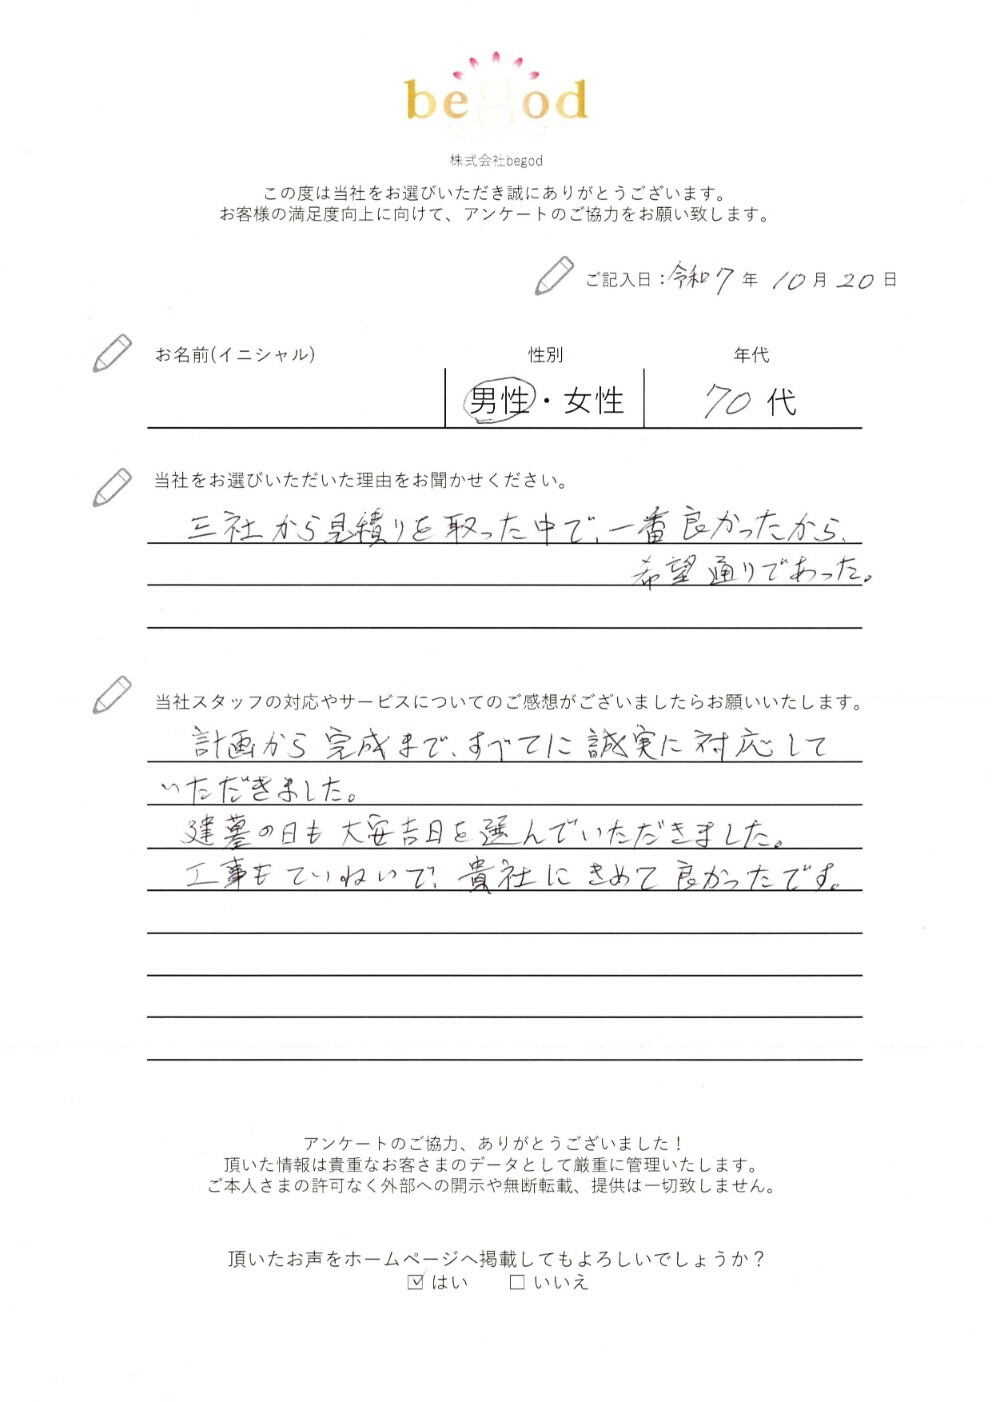 begod
株式会社begod
この度は当社をお選びいただき誠にありがとうございます。
お客様の満足度向上に向けて、アンケートのご協力をお願い致します。
ご記入日：令和7年 10月20日
お名前(イニシャル) 性別 年代
男性・女性 70代
当社をお選びいただいた理由をお聞かせください。
三社から見積りを取った中で、一番良かったから、
希望通りであった。
当社スタッフの対応やサービスについてのご感想がございましたらお願いいたします。
計画から完成まで、すべてに誠実に対応して
いただきました。
建墓の日も大安吉日を選んでいただきました。
工事もていねいで、貴社にきめて良かったです。
アンケートのご協力、ありがとうございました！
頂いた情報は貴重なお客さまのデータとして厳重に管理いたします。
ご本人さまの許可なく外部への開示や無断転載、提供は一切致しません。
頂いたお声をホームページへ掲載してもよろしいでしょうか？
☑はい □いいえ